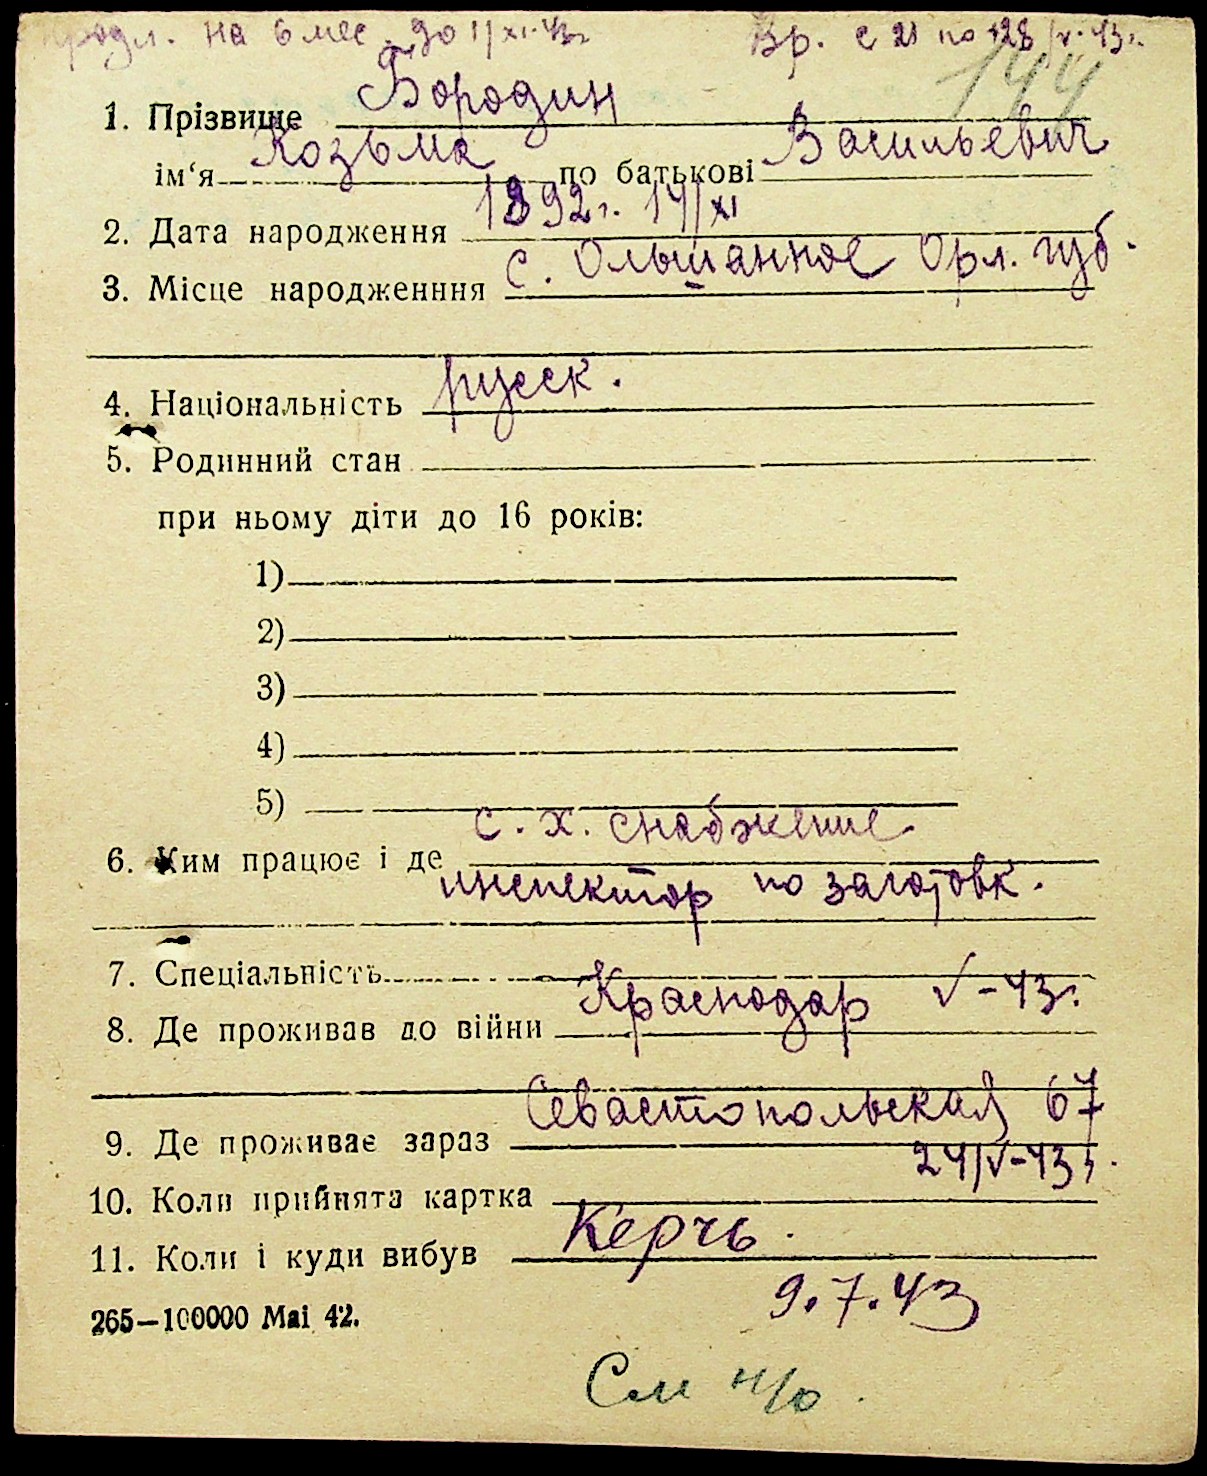 продл. на 6 мес. до 11/XI.43г Вр. с 21 по 28/V.43г.
144
1. Прізвище Бородин
ім‘я Козьма по батькові Васильевич
2. Дата народження 1892г. 14/XI
3. Місце народженння с. Ольшанное Орл. губ.
4. Національність русск.
5. Родинний стан
при ньому діти до 16 років:
1)
2)
3)
4)
5)
6. Ким працює і де с. х. снабжение
инспектор по заготовк.
7. Спеціальність
8. Де проживав до війни Краснодар V-43г.
9. Де проживає зараз Севастопольская 67
10. Коли прийнята картка 24/V-43г.
11. Коли і куди вибув Керчь.
265—100000 Mai 42. 9.7.43
См н/о.